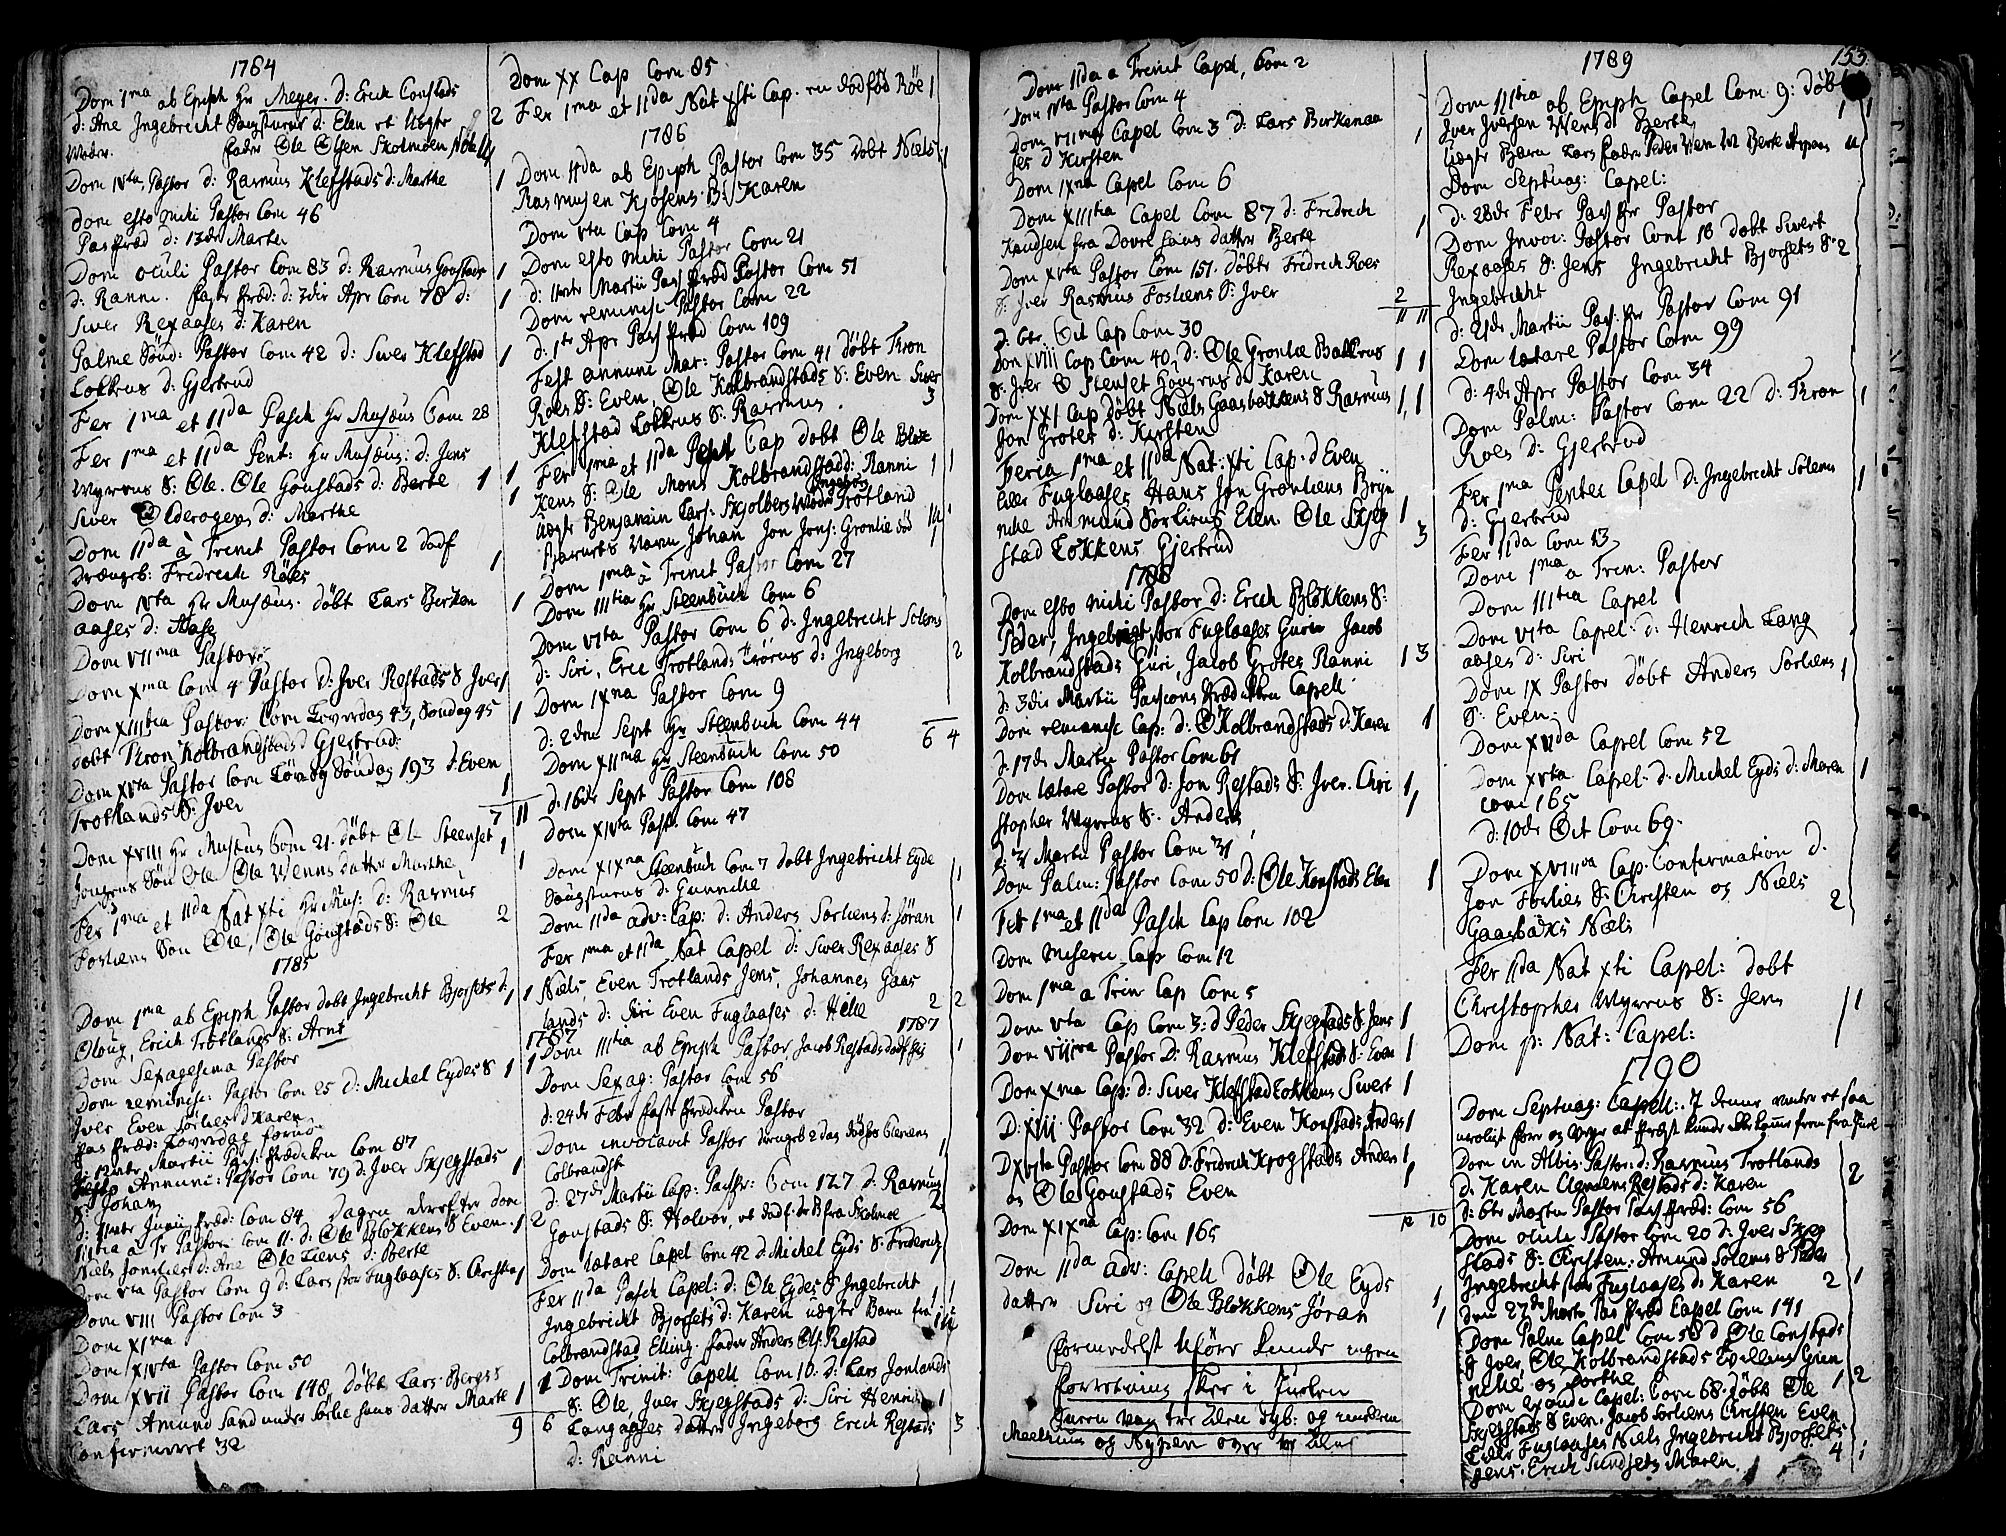 1784
Dom 1ma ab Epiph Hr Meyer. d: Erich Constads
d: Ane Ingebrecht d: Elen et Uegte
Moder. fader Ole Olsen Skolmoen
Dom IVta Pastor d: Rasmus Klefstads d: Marthe
Dom esto michi Pastor Com 46
Pas Præd d: 13de Martii
Dom oculi Pastor Com 83 d: Rasmus Gonstads
d: Ranni. faste Præd: d: 2die Apr Com 78 d:
Siver Rexaases d: Karen
Palme Sönd: Pastor Com 42 d: Siver Klefstad
Løkkens d: Gjertrud
Fer 1ma et 11da Pasch Hr Musæus Com 28
Fer 1ma et 11da Pent: Hr Musæus: d: Jens
Myrens S: Ole. Ole Gonstads d: Berte
Siver d: Marthe
Dom 11da à Trinit Pastor Com 2 dødf
Drængeb: Fredrich Röes
Dom IVta Hr Musæus. døbt Lars Birken
aases d: Aase
Dom VIIma Pastor
Dom Xma Com 4 Pastor d: Iver Restads S Iver
Dom XIIItia Pastor: Com Løverdag 43, Søndag 45
døbt Thron Kolbrandstads d Gjertrud:
Dom XVta Pastor Com Søndag 193 d: Even
Trotlands S: Iver
Dom XVIII Hr Musæus Com 21. døbt Ole Steenset
Søn Ole Ole Wenns datter Marthe
Fer 1ma et 11da Nat xti Hr Mus: d: Rasmus
Fosliens Søn Ole, Ole Gonstads S: Ole
1785
Dom 1ma ab Epiph Pastor døbt Ingebrecht Bjorsets d:
Oloug, Erich Trotlands S: Arnt
Dom Sexagesima Pastor
Dom reminisc: Pastor Com 25 d: Michel Eydes S
Iver Even d Karen
Pas Præd: Løverdag
d: 12te Martii Pas: Prædiken Com 87
Festo Annunc: Pastor Com 79 d: Iver Skjegstads
S: Johan
d: Junii Præd: Com 84 Dagen derefter dom
IIItia a Tr Pastor: Com 11. d: Ole Blokkens S Even.
Niels Jonsliens d: Ane Ole Liens d: Berte
Dom Vta Pastor Com 9 d: Lars stor Fuglaases S: Christen
Dom VIII Pastor Com 3
Dom XIma
Dom XIVta Pastor Com 50
Dom XVII Pastor Com 148, døbt Lars Bergs S
Lars Amund Sand under Sorlie hans datter Marte
Confirmeret 32
Dom XX Cap Com 85
Fer 1ma et 11da Nat Xsti Cap. en dødfød Röe
1786
Dom 11da ab Epiph Pastor Com 35 døbt Niels
Rasmusen Kjøsens B: Karen
Dom Vta Cap Com 4
Dom esto michi Pastor Com 21
d: 11te Martii Pas Præd Pastor Com 51
Dom reminisc Pastor Com 22
d: 1te Apr Pas Præd Com 109
Fest annunc Mar: Pastor Com 41 døbt Thron
Roes S: Even, Ole Kolbrandstads S: Even Siver
Klefstad Løkkens S: Rasmus
Fer 1ma et 11da Pent Cap døbt Ole Blok
kens S: Ole Mons Kolbrandstad d: Ranni
Uegte Benjamin Lars: Skjolbergs Moder Ingebor Trotland
Barnets Navn Johan Jon Jons: Grønlie død
Dom 1ma à Trinit Pastor Com 27
Dom IIItia Hr Steenbuck Com 6
Dom VIta Pastor Com 6 d: Ingebrecht Solems
d: Siri, Eric Trotlands d: Ingeborg
Dom IXna Pastor Com 9
d: 2den Sept Hr Steenbuck Com 44
Dom XIIma Hr Steenbuck Com 50
d: 16de Sept Pastor Com 108
Dom XIVta Past: Com 47
Dom XIXna Steenbuck Com 7 døbt Ingebricht Eyde
d: Gunnelie
Dom 11da adv: Cap: d: Anders Sorliens d: Jøran
Fer 1ma et 11da Nat Capel d: Siver Rexaases S
Niels, Even Trotlands Jens, Johannes Gaas
lands d: Siri Even Fuglaases d: Helle
1787
1787
Dom IIItia ab Epiph Pastor Jacob Restads dødf Pig
Dom Sexag: Pastor Com 56
d: 24de Febr faste Prædiken Pastor
Dom invocavit Pastor
Colbrandst
d: 27de Martii Cap: Pas Pr: Com 127 d: Rasmus
Gonstads S: Halvor, et dødf: dr B fra Skolmoe
Dom lætare Capel Com 42 d: Michel Eyds S: Frederich
Fer 11da Pasch Capel: d: Ole Eydes S Ingebrecht
Ingebricht Bjorsets d: Karen uægte Barn fra
Colbrandstad Elling. fader Anders Ols: Restad
Dom Trinit: Capell Com 10. d: Lars Jonlands
S: Ole, Iver Skjegstads d: Siri Henric
Langaases datter Ingeborg Erich Restads
d: Ranni
Dom 11da a Trinit Capel, Com 2
Dom IVta Pastor Com 4
Dom VIIma Capel Com 3 d: Lars Birkenaa
ses d Kirsten
Dom IXna Capel Com 6
Dom XIIItia Capel Com 87 d: Fredrich
Knudsen fra Dovre hans datter Berte
Dom XVta Pastor Com 151. døbte Fredrich Roes
S: Iver Rasmus Fosliens S: Iver
d. 6te Oct Cap Com 30
Dom XVIII Cap Com 40, d: Ole Gronlie Bakkens
S: Iver O Stenset d: Karen
Dom XXI Cap døbt Niels Gaasbakkens S Rasmus
Jon Grotes d: Kirsten
Feria 1ma et 11da Nat: xti Cap. d Even
Eller Fuglaases Hans Jon Gronliens Bryn
nild Amund Sorliens Elen Ole Skjeg
stad Løkkens Gjertrud
1788
Dom esto michi Pastor d: Erich Blokkens S:
Peder, Ingebrigt stor Fuglaases Guru Jacob
Kolbrandstads Guri, Jacob Grotes Ranni
d: 3die Martii Passions Prædiken Capell
Dom reminisc Cap: d: O Kolbrandstads d: Karen
d: 17de Martii Pastor Com 61
Dom lætare Pastor d: Jon Restads S: Iver. Chri
stopher Myrens S: Anders
d: 31 Martii Pastor Com 31
Dom Palm: Pastor Com 50 d: Ole Konstads Elen
Fet 1ma et 11da Pasch Cap Com 102
Dom Miseric Cap Com 12
Dom 1ma a Trin Cap Com 5
Dom Vta Cap Com 3: d Peder Skjegstads S: Jens
Dom VIIma Pastor D: Rasmus Klefstads S: Even
Dom Xma Cap: d: Siver Klefstad Løkkens Sivert
D: XIII Pastor Com 32 d: Even Konstads Anders
D XVIta Pastor Com 88 d: Fredrich Krogstads Anders
og Ole Gonstads Even
Dom XIXna Cap: Com 165
Dom 11da adv: Capell døbt Ole Eyds
datter Siri og Ole Blokkens Jøran
formedelst Uføre kunde ingen
Forretning skee i Julen
Sneen var tre Alen dyb: og imellem
Meelhuus og Nypan over Alen
1789
153
Dom IIItia ab Epiph Capel Com 9: døbt
Iver Iversen Wens d Berte
Uægte Barn Lars fader Peder
Dom Septuag: Capel:
d: 28de Febr Pas Pr Pastor
Dom Invoc: Pastor Com 18 døbt Sivert
Rexaases S: Jens Ingebricht Bjorsets S:
Ingebricht
d: 21de Martii Pas: Pr Pastor Com 91
Dom lætare Pastor Com 99
d: 4de Apr Pastor Com 34
Dom Palm: Pastor Com 22 d: Thron
Roes d: Gjertrud
Fer 1ma Pentec Capel d: Ingebrecht Solems
d: Gjertrud
Fer 11da Com 13
Dom 1ma a Trin: Pastor
Dom IIItia Capel
Dom VIta Capel: d: Henrich Lang
aases d: Siri
Dom IX Pastor døbt Anders Sorliens
S: Even
Dom XIIda Capel Com 52
Dom XVta Capel: d: Michel Eyds d: Maren
Com 165
d: 10de Oct Com 69.
Dom XVIIIva Cap: Confirmation d.
Jon Foslies S: Christen og Niels
Gaasbakks Niels
Fer 11da Nat xti Capel: døbt
Christopher Myrens S: Jens
Dom p: Nat: Capel:
1790
Dom Septuag: Capell: I denne vinter et saa
uroligt føre og Veyr at Præst kunde ikke komme frem fra Juel
Dom in Albis Pastor: d: Rasmus Trotlands
d: Karen Clemens Restads d: Karen
d: 6te Martii Pastor Pas Præd: Com 56
Dom oculi Pastor Com 20 d: Iver Skjeg
stads S: Christen: Amund Solems S Peder
Ingebrecht stor Fuglaases d: Karen
den 27de Marti Pas Præd Capel Com 141
Dom Palm Capel Com 58 d Ole Constads
S Iver, Ole Kolbrandstads Gun
nelie og Dorthe
Dom exaudi Capel: Com 68. døbt Ole
Skjegstads S Even. Jacob Sorliens Christen Even
Eller Fuglaases Niels Ingebrecht Bjorsets
Jens. Erich Sundsets Maren